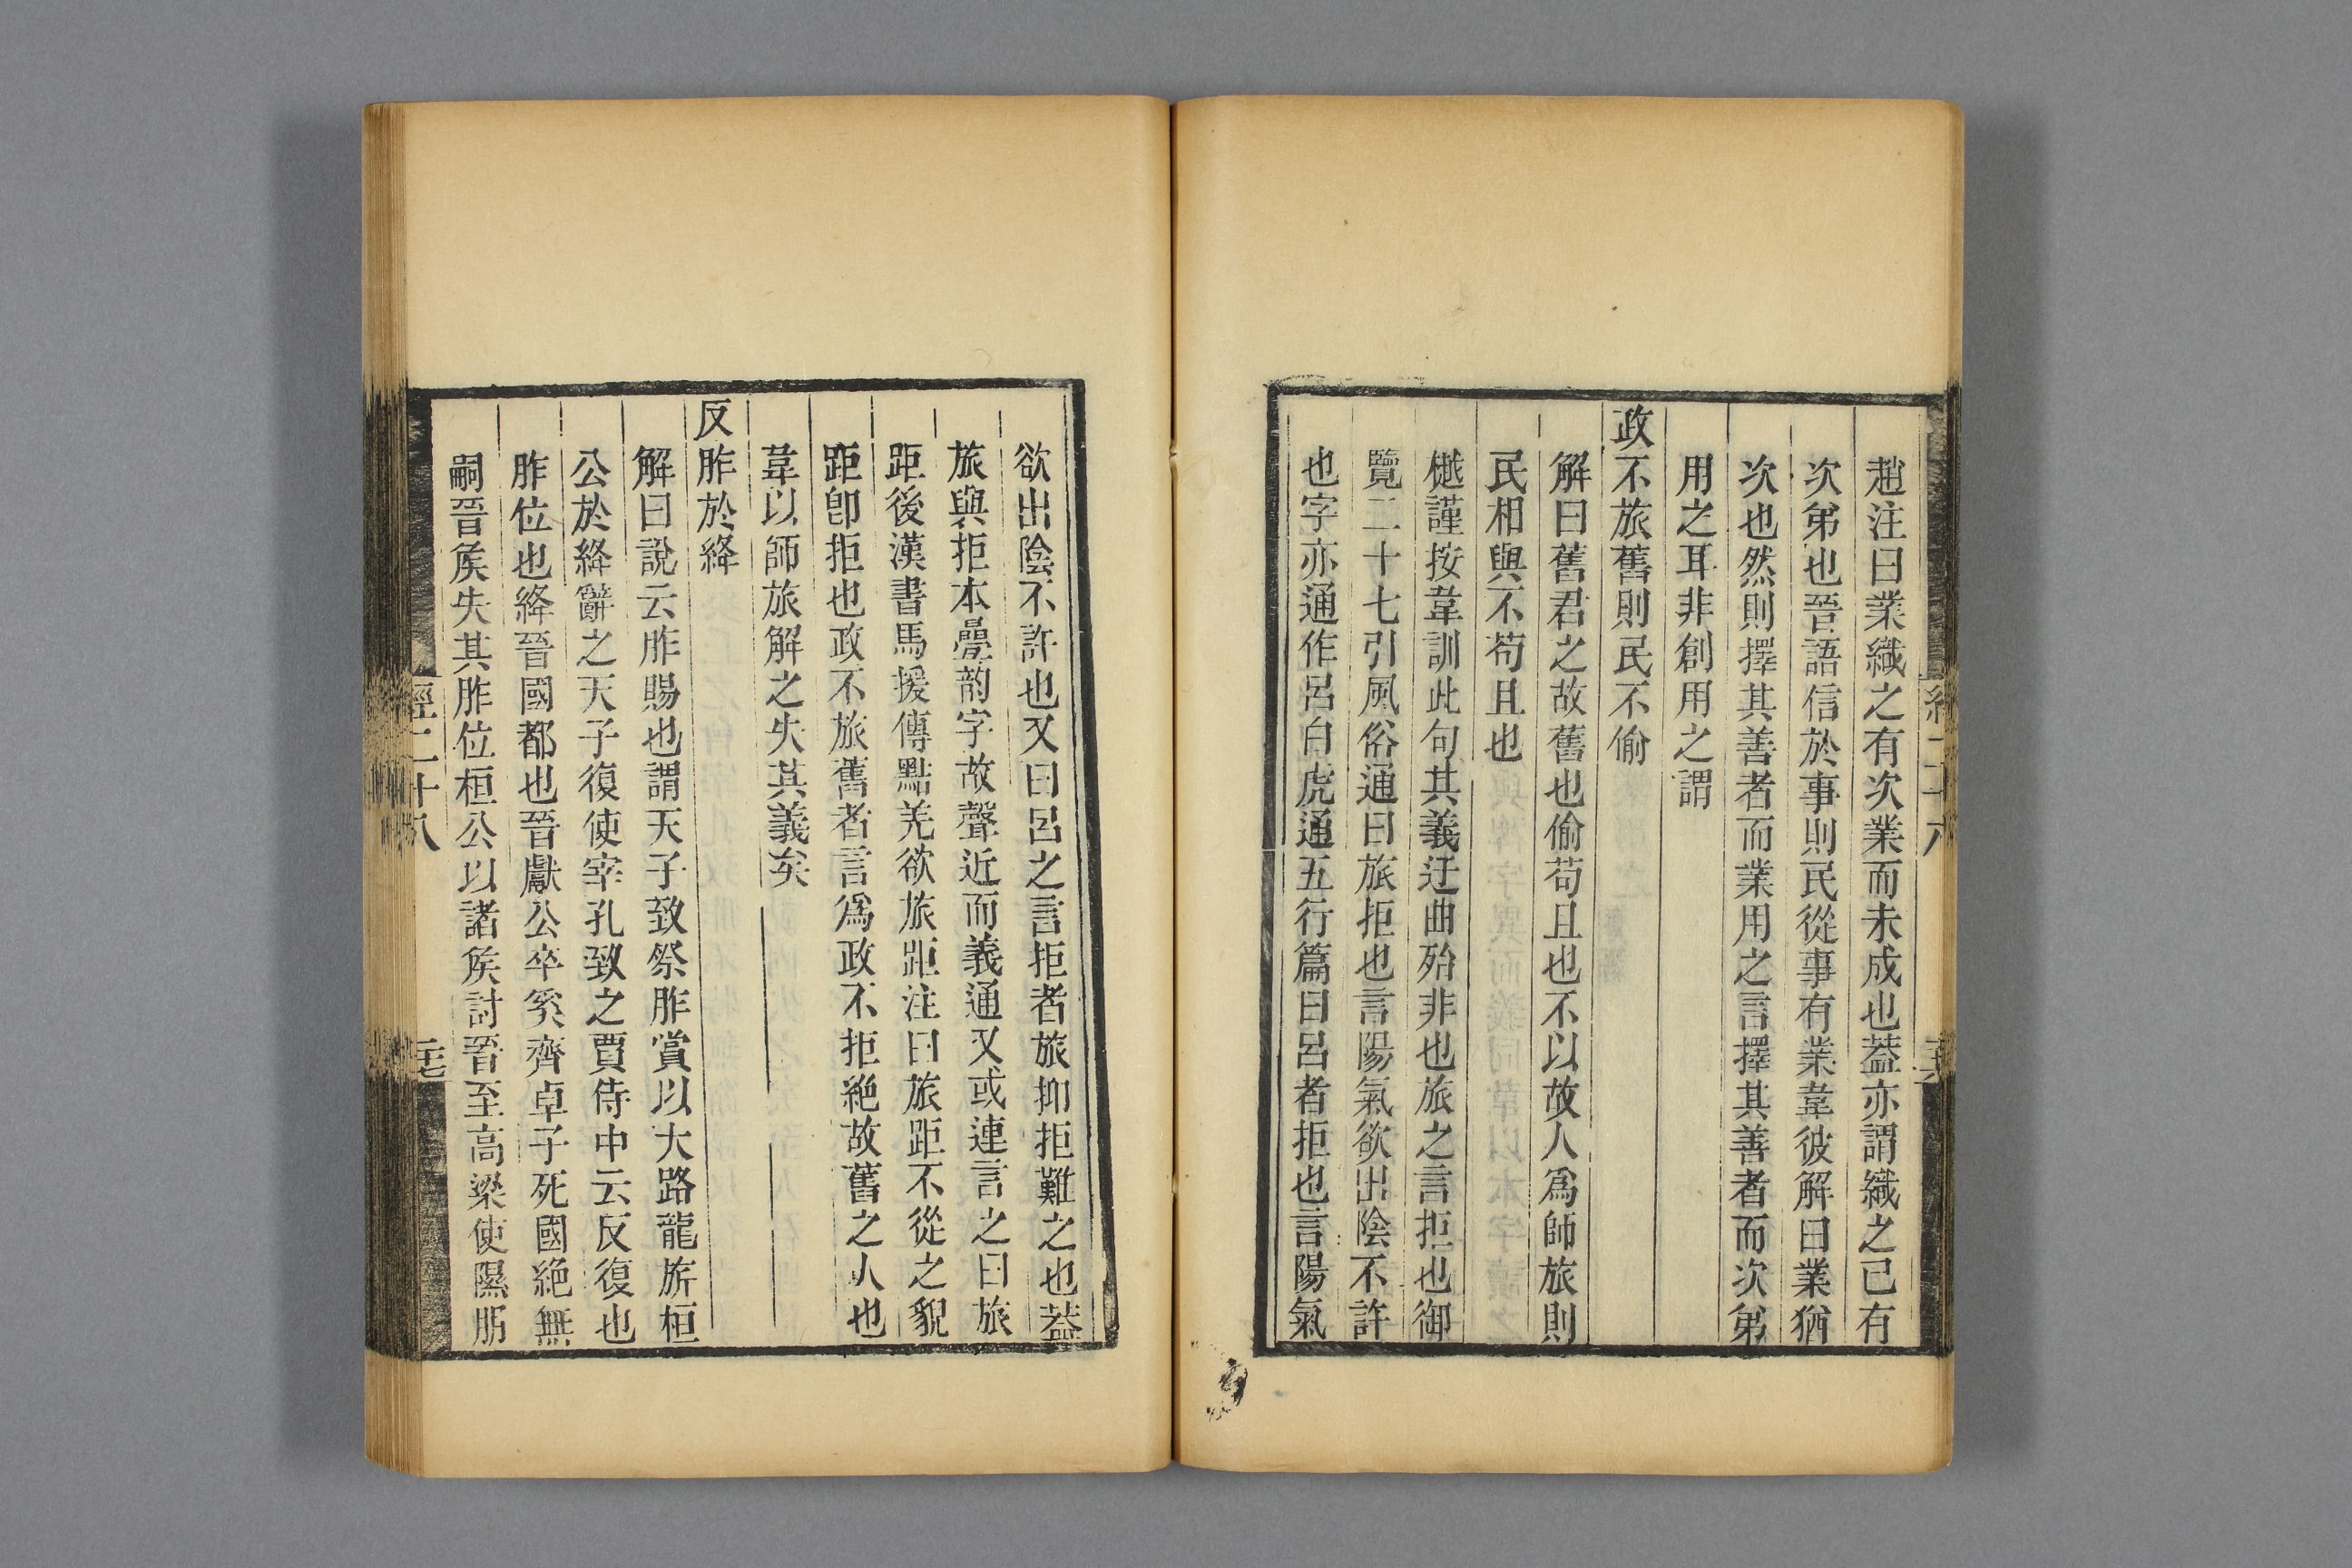 趙注曰業織之有次業而未成也葢亦謂織之已有
次弟也晉語信於事則民從事有業韋彼解曰業猶
次也然則擇其善者而業用之言擇其善者而次弟
用之耳非創用之謂
政不旅舊則民不偷
解曰舊君之故舊也偷苟且也不以故人爲師旅則
民相與不苟且也
樾謹按韋訓此句其義迂曲殆非也旅之言拒也御
覽二十七引風俗通曰旅拒也言陽氣欲出陰不許
也字亦通作呂白虎通五行篇曰呂者拒也言陽氣
欲出陰不許也又曰呂之言拒者旅抑拒難之也葢
旅與拒本曡韵字故聲近而義通又或連言之曰旅
距後漢書馬援傳點羌欲旅距注曰旅距不從之貌
距卽拒也政不旅舊者言爲政不拒絶故舊之人也
韋以師旅解之失其義矣
反胙於絳
解曰說云胙賜也謂天子致祭胙賞以大路龍旂桓
公於絳辭之天子復使宰孔致之賈侍中云反復也
胙位也絳晉國都也晉獻公卒奚齊卓子死國絶無
嗣晉矦失其胙位桓公以諸矦討晉至高梁使隰朋
經二十八